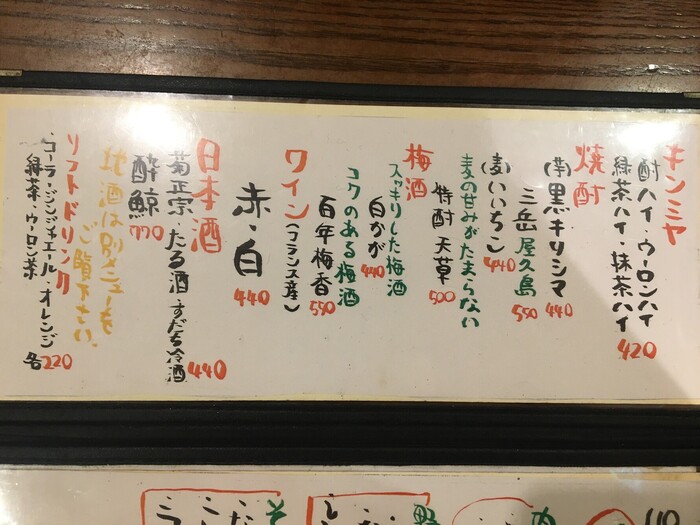 キンミヤ
酎ハイ・ウーロンハイ
緑茶ハイ・抹茶ハイ
420
焼酎
(芋)黒キリシマ 440
三岳 屋久島 550
(麦)いいちこ 440
麦の甘みがたまらない
特酎 天草 500
梅酒
スッキリした梅酒
白かが 440
コクのある梅酒
百年梅香 550
ワイン(フランス産)
赤・白 440
日本酒
菊正宗・たる酒・すだち冷酒 440
酔鯨 770
地酒は別メニューも
ご覧下さい。
ソフトドリンク
・コーラ・ジンジャエール・オレンジ
緑茶・ウーロン茶 各220